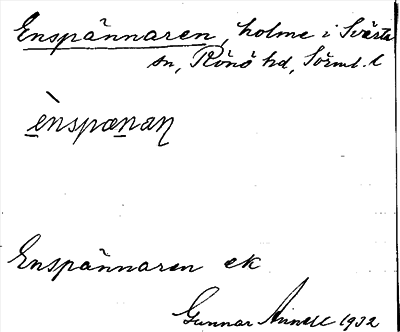 Enspännaren, holme i Svärta
sn, Rönö hd, Sörml. l
ènspænaṇ
Enspännaren ek
Gunnar Ainell 1932